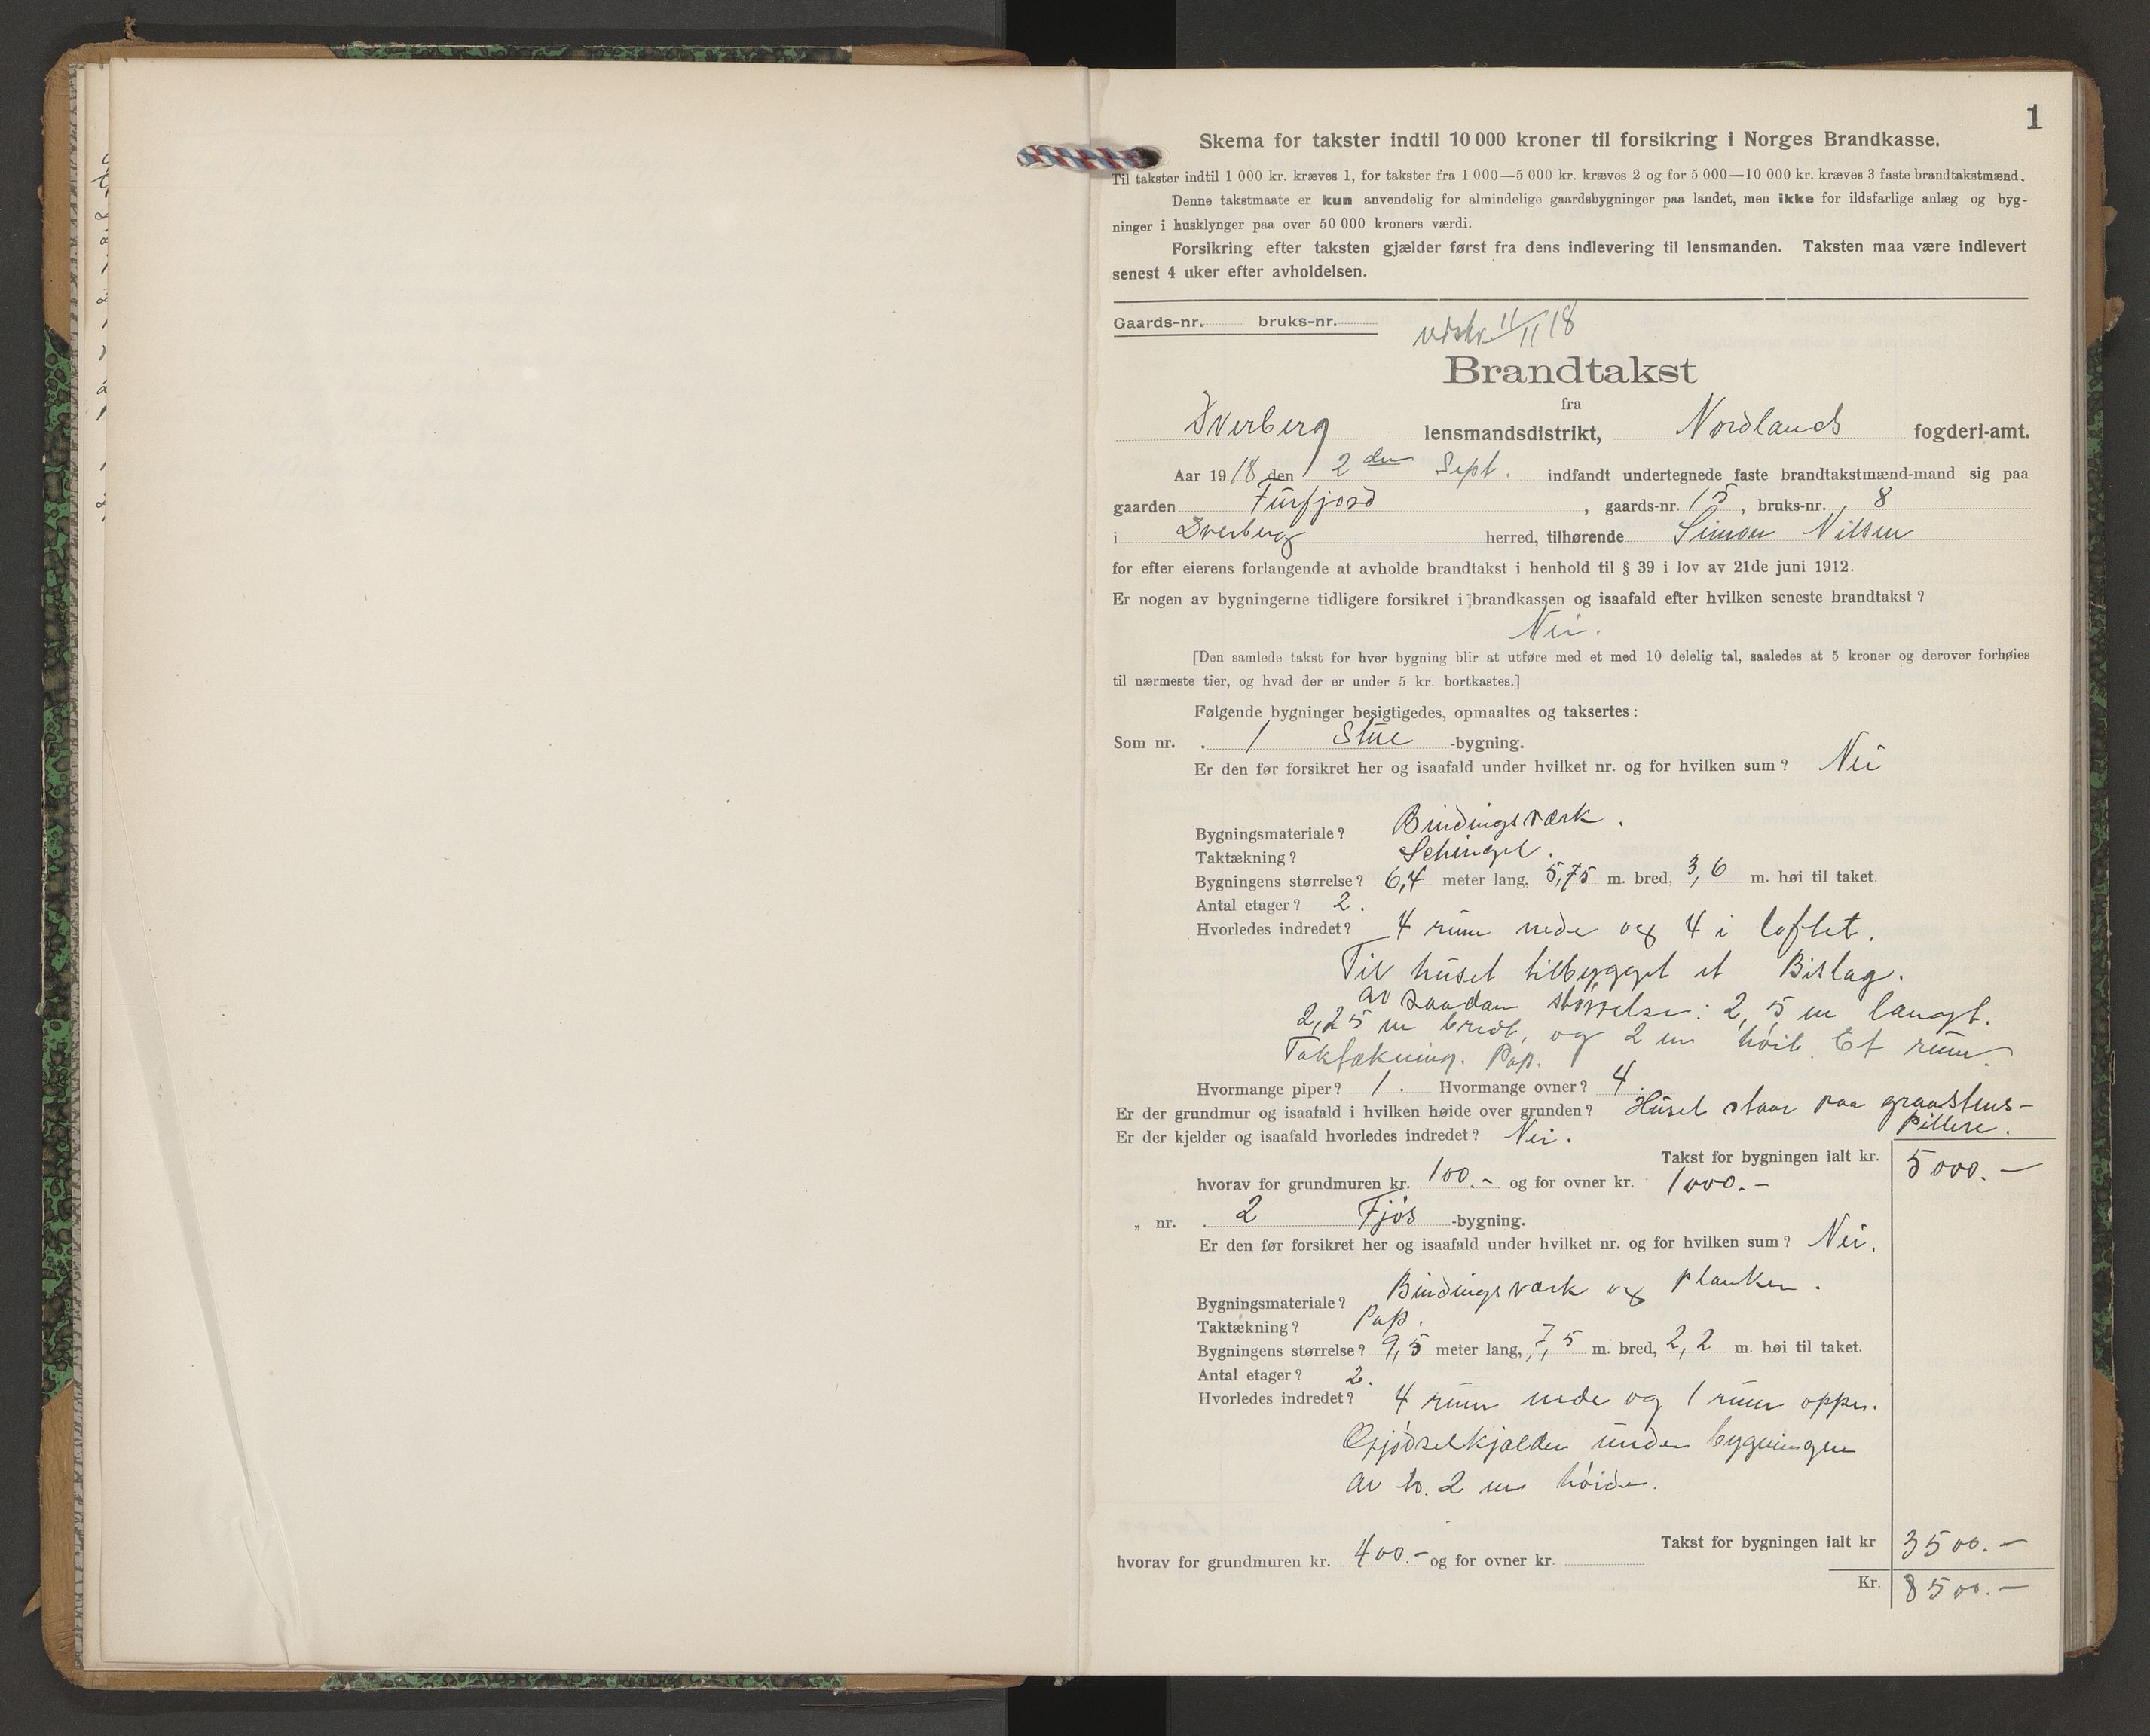 1
Skema for takster indtil 10 000 kroner til forsikring i Norges Brandkasse.
Til takster indtil 1 000 kr. kræves 1, for takster fra 1 000—5 000 kr. kræves 2 og for 5 000—10 000 kr. kræves 3 faste brandtakstmænd.
Denne takstmaate er kun anvendelig for almindelige gaardsbygninger paa landet, men ikke for ildsfarlige anlæg og byg-
ninger i husklynger paa over 50 000 kroners værdi.
Forsikring efter taksten gjælder først fra dens indlevering til lensmanden. Taksten maa være indlevert
senest 4 uker efter avholdelsen.
Gaards-nr. bruks-nr.
utskr. 11/11 18
Brandtakst
fra
Dverberg lensmandsdistrikt, Nordlands fogderi-amt.
Aar 1918 den 2den Sept. indfandt undertegnede faste brandtakstmænd-mand sig paa
gaarden Fúrfjord, gaards-nr. 15, bruks-nr. 8
i Dverberg herred, tilhørende Simon Nilsen
for efter eierens forlangende at avholde brandtakst i henhold til § 39 i lov av 21de juni 1912.
Er nogen av bygningerne tidligere forsikret i brandkassen og isaafald efter hvilken seneste brandtakst?
Nei.
[Den samlede takst for hver bygning blir at utføre med et med 10 delelig tal, saaledes at 5 kroner og derover forhøies
til nærmeste tier, og hvad der er under 5 kr. bortkastes.]
Følgende bygninger besigtigedes, opmaaltes og taksertes:
Som nr. 1 Stue -bygning.
Er den før forsikret her og isaafald under hvilket nr. og for hvilken sum? Nei
Bygningsmateriale? Bindingsværk.
Taktækning? Schingel.
Bygningens størrelse? 6,4 meter lang, 5,75 m. bred, 3,6 m. høi til taket.
Antal etager? 2.
Hvorledes indredet? 4 rum nede og 4 i loftet.
Til huset tilbygget et Bislag.
av saadan størrelse: 2,5 m langt.
2,25 m bredt, og 2 m høit. Et rum
Taktækning. Pap.
Hvormange piper? 1. Hvormange ovner? 4.
Er der grundmur og isaafald i hvilken høide over grunden? Huset staar paa graastens-
pillere.
Er der kjelder og isaafald hvorledes indredet? Nei.
Takst for bygningen ialt kr. 5000.-
hvorav for grundmuren kr. 100.- og for ovner kr. 1000.-
„ nr. 2 Fjøs -bygning.
Er den før forsikret her og isaafald under hvilket nr. og for hvilken sum? Nei.
Bygningsmateriale? Bindingsværk og planker.
Taktækning? Pap.
Bygningens størrelse? 9,5 meter lang, 7,5 m. bred, 2,2 m. høi til taket.
Antal etager? 2.
Hvorledes indredet? 4 rum nede og 1 rum oppe.
Gjødselkjælder under bygningen
av 2 m høide.
Takst for bygningen ialt kr 3500.-
hvorav for grundmuren kr. 400.- og for ovner kr.
Kr. 8500.-